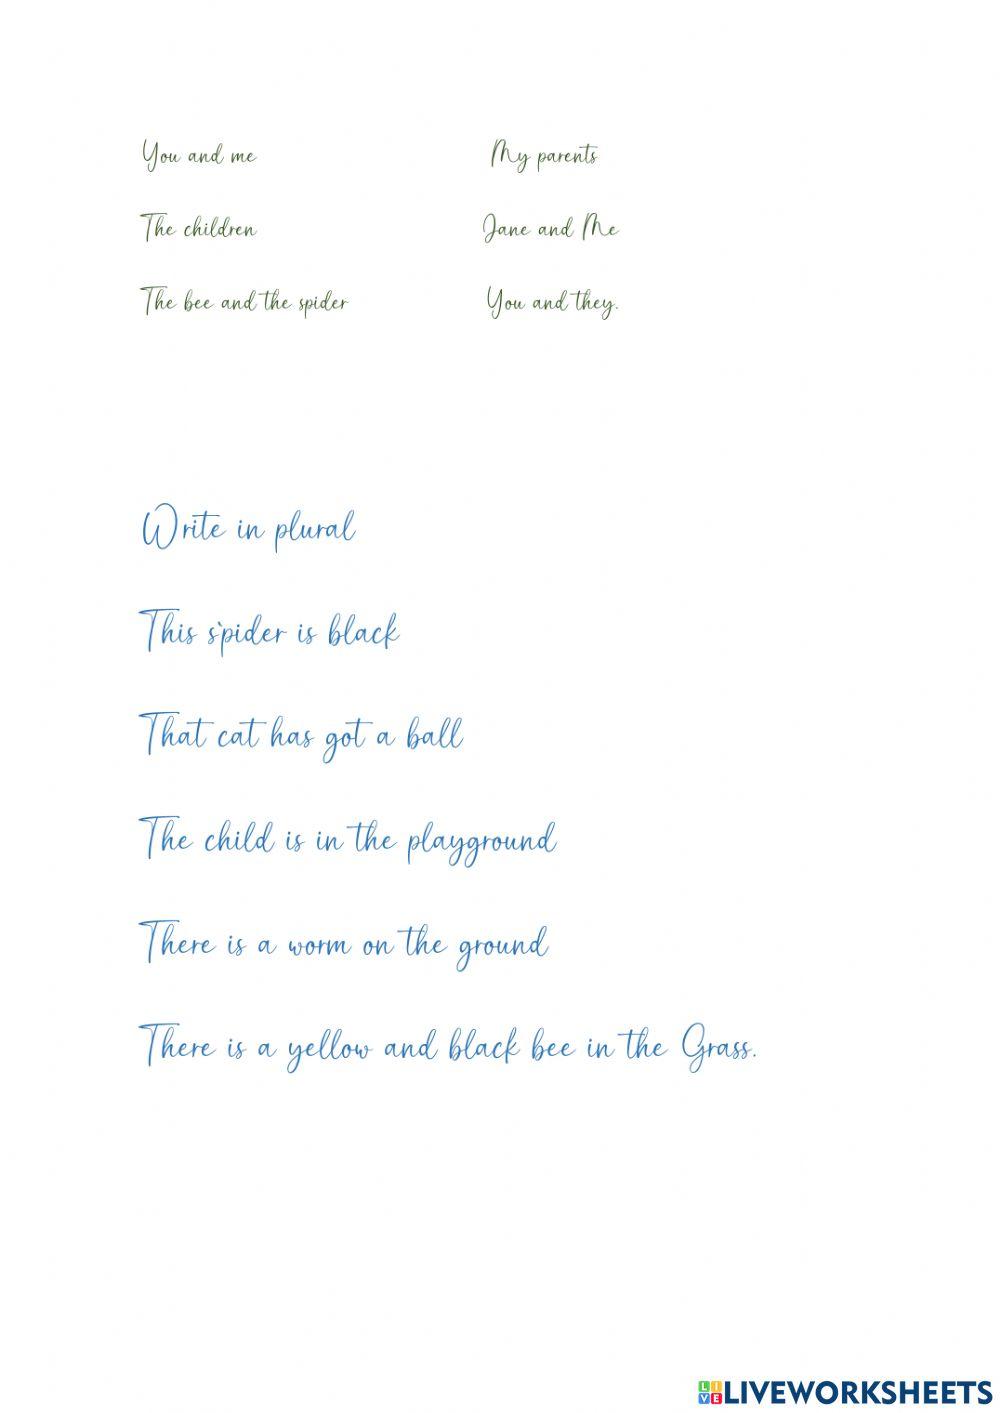 You and me My parents
The children Jane and Me
The bee and the spider You and they.
Write in plural
This s`pider is black
That cat has got a ball
The child is in the playground
There is a worm on the ground
There is a yellow and black bee in the Grass.
LIVE LIVEWORKSHEETS